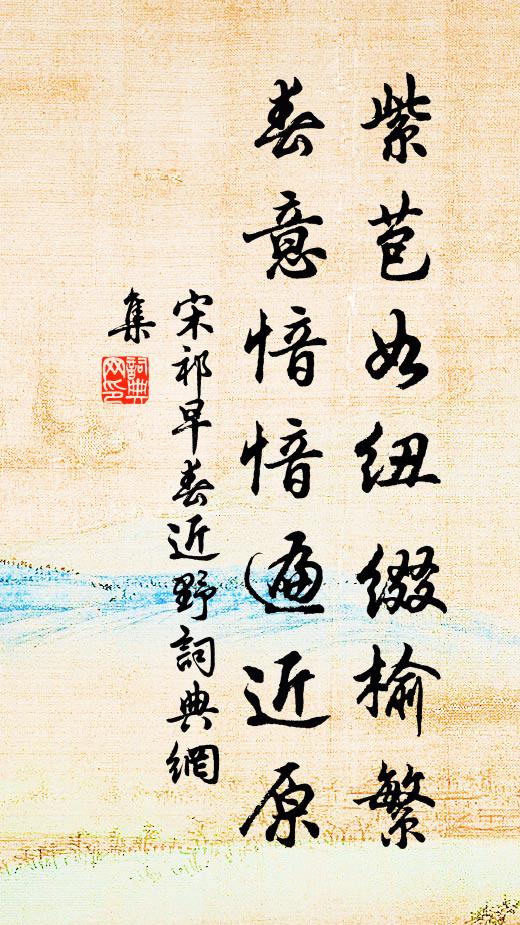 紫苞如紐綴榆繁
春意愔愔遍近原
宋祁早春近野詞典網
集
詞典
網印